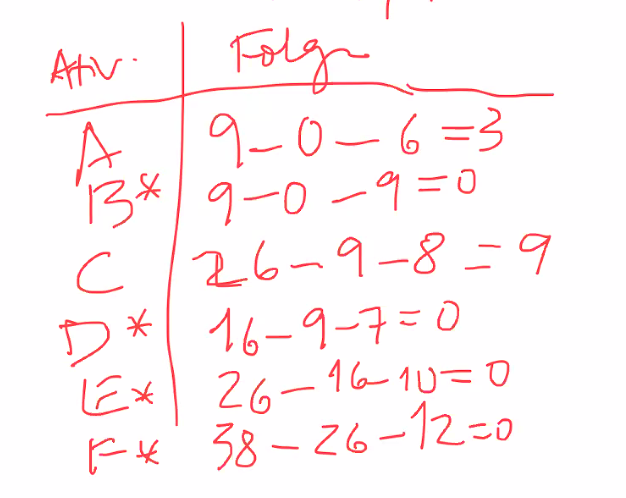 Ativ. Folga
A 9-0-6=3
B* 9-0-9=0
C 26-9-8=9
D* 16-9-7=0
E* 26-16-10=0
F* 38-26-12=0